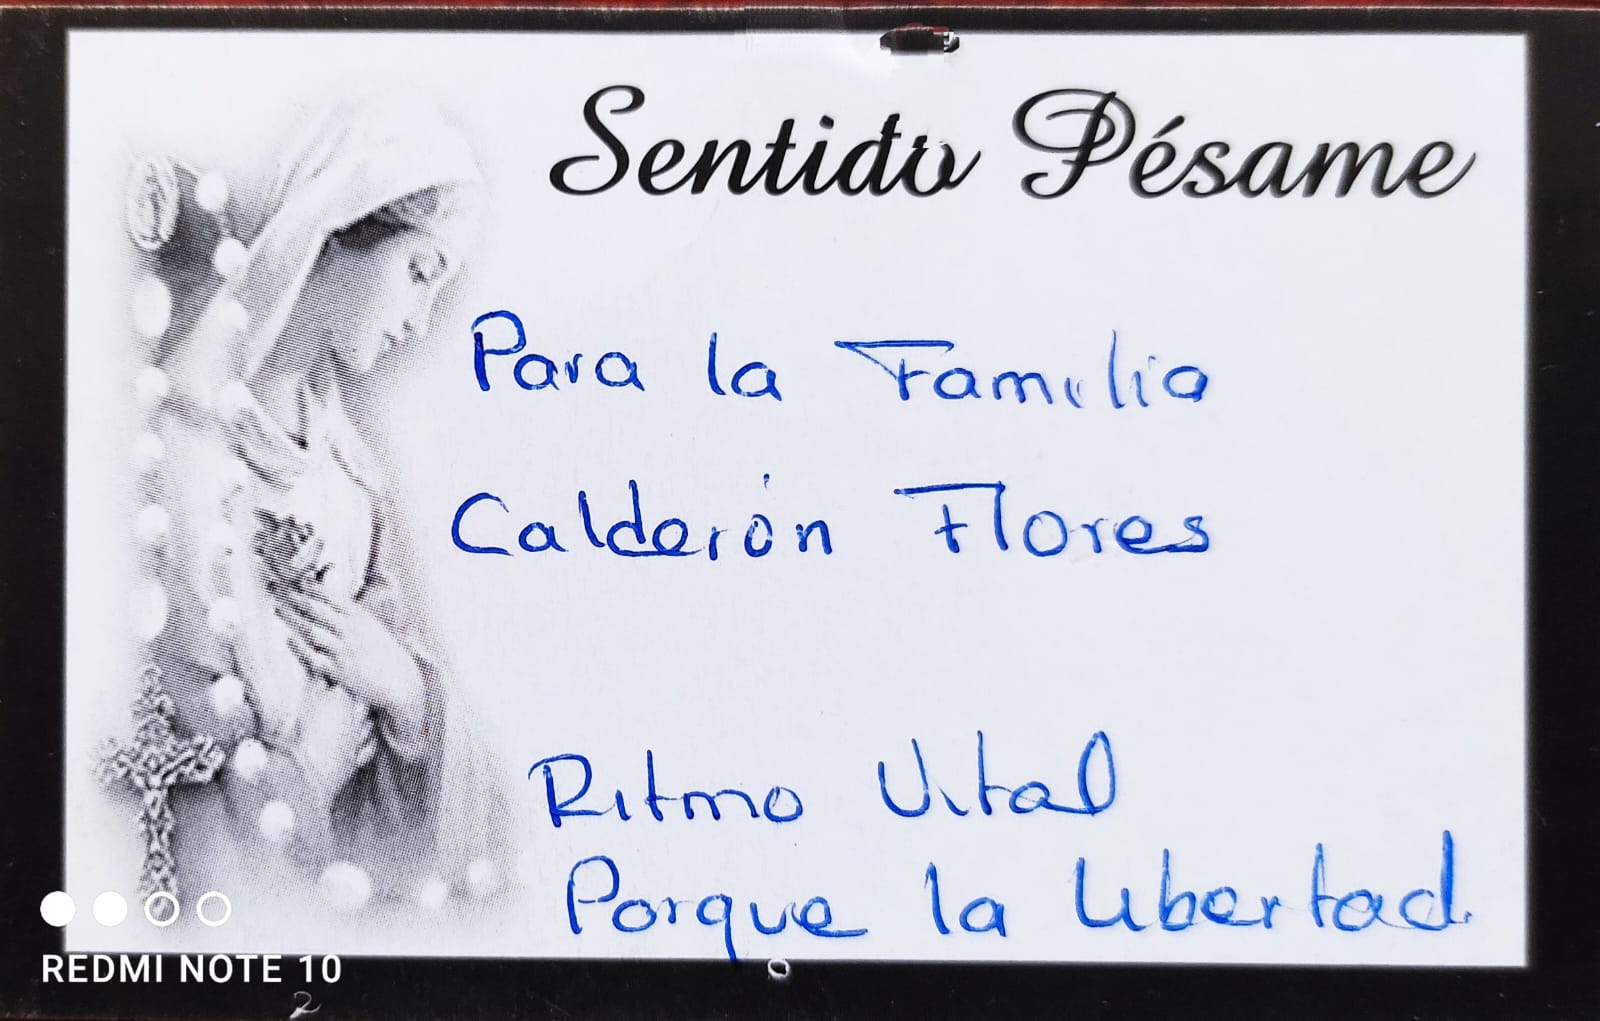 Sentido Pésame
Para la Familia
Calderón Flores
Ritmo Vital
Porque la libertad.
REDMI NOTE 10
2